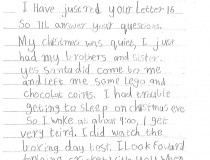 I Have juscred your Letter 16
So Ill answer your questions.
My christmas was quiet, I just
had my brothers and sister.
yes santa did come to me
and left me some lego and
chocolat coins. I had trouble
getting to sleep on christmas eve
So I woke at about 9:00, I get
very tired. I did watch the
boxing day test. I Look foward
to